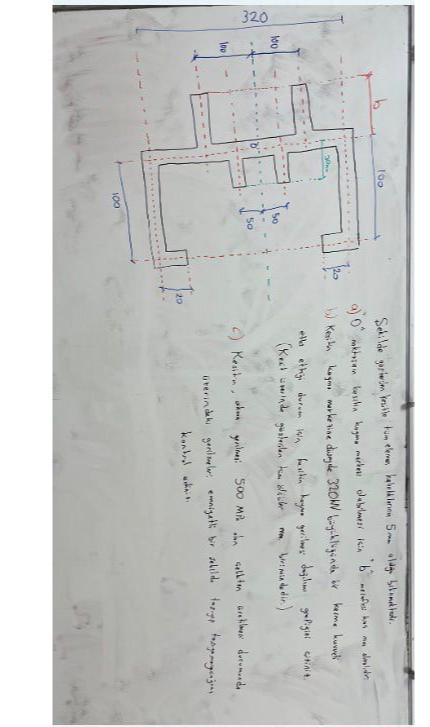 Şekilde gösterilen kesitin tüm eleman kalınlıklarının 5 mm olduğu bilinmektedir.
a) "O" noktasının kesitin kayma merkezi olabilmesi için "b" mesafesi kaç mm olmalıdır
b) Kesitin kayma merkezine düşeyde 320kN büyüklüğünde bir kesme kuvveti
etki ettiği durum için kesitin kayma gerilmesi dağılımı grafiğini çiziniz.
(Kesit üzerinde gösterilen tüm ölçüler mm birimindedir.)
c) Kesitin, akma gerilmesi 500 MPa olan çelikten üretilmesi durumunda
üzerindeki gerilmeleri emniyetli bir şekilde taşıyıp taşıyamayacağını
kontrol ediniz
320
100
100
b
100
50mm
O
50
50
20
100
20